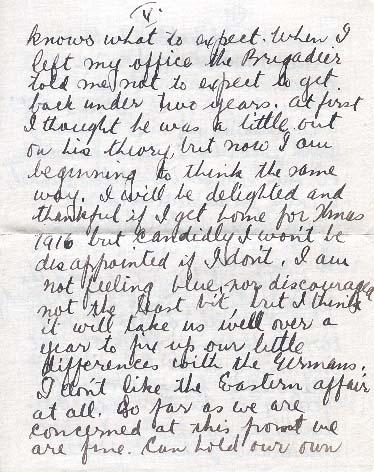 V.
knows what to expect. When I
left my office the Brigadier
told me not to expect to get
back under two years. At first
I thought he was a little out
on his theory, but now I am
beginning to think the same
way. I will be delighted and
thankful if I get home for Xmas
1916 but candidly I won't be
disappointed if I don't. I am
not feeling blue, nor discouraged
not the least bit, but I think
it will take us well over a
year to fix up our little
differences with the Germans.
I don't like the Eastern affair
at all. So far as we are
concerned at this point we
are fine. Can hold our own